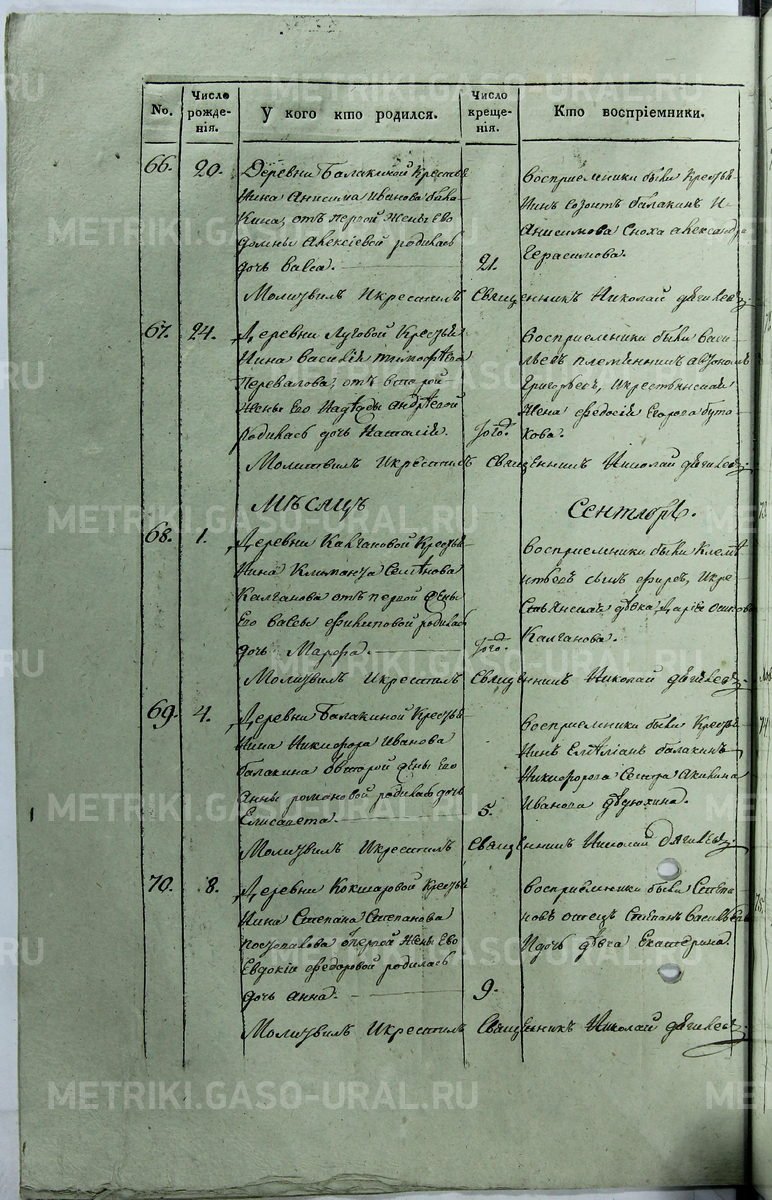 No.
Число рожденія.
У кого кто родился.
Число крещенія.
Кто воспріемники.
66. 20. Деревни Балакиной Крестья
нина Анисима Иванова бала
кина, отъ первой жены Его
домны алексіевой родилась
дочь васса. 21.
воспріемники были Крестья
нинъ Созонтъ балакинъ И
Анисимова Сноха александра
Герасимова.
Молитвилъ Икрестилъ Священникъ Николай
67. 24. Деревни Луговой Крестья
нина василія тимофѣева
Перевалова, отъ второй
жены Его Надѣжды андрѣевой
родилась дочь Наталія.
воспріемники были Васи
льевъ племянникъ
Григорьевъ, Икрестьянская
жена федосія Егорова буто
кова.
Молитвилъ Икрестилъ Священникъ Николай
Мѣсяцъ Сентябрь.
68. 1. Деревни Калгановой Кресть
нина Климанта Семѣнова
Калганова отъ первой жены
Его вассы филиповой родилась
дочь Марфа.
воспріемники были Климѣ
нтьевъ сынъ Икре
стьянская дѣвка дарья осипова
Калганова.
Молитвилъ Икрестилъ Священникъ Николай
69. 4. Деревни Балакиной Кресть
нина Никифора Иванова
балакина овторой жены Его
Анны романовой родилась дочь
Елисавета. 5.
воспріемники были Кресть
нинъ Емѣліанъ балакинъ
Никифорова Сестра акилина
Иванова дѣдюхина.
Молитвилъ Икрестилъ Священникъ Николай
70. 8. Деревни Кокшаровой Кресть
нина Степана Степанова
опервой жены Ево
Евдокіи федоровой родилась
дочь анна. 9.
воспріемники были Степа
новъ отецъ Степанъ Василь
Идочь дѣвка Екатерина.
Молитвилъ Икрестилъ Священникъ Николай
METRIKI.GASO-URAL.RU